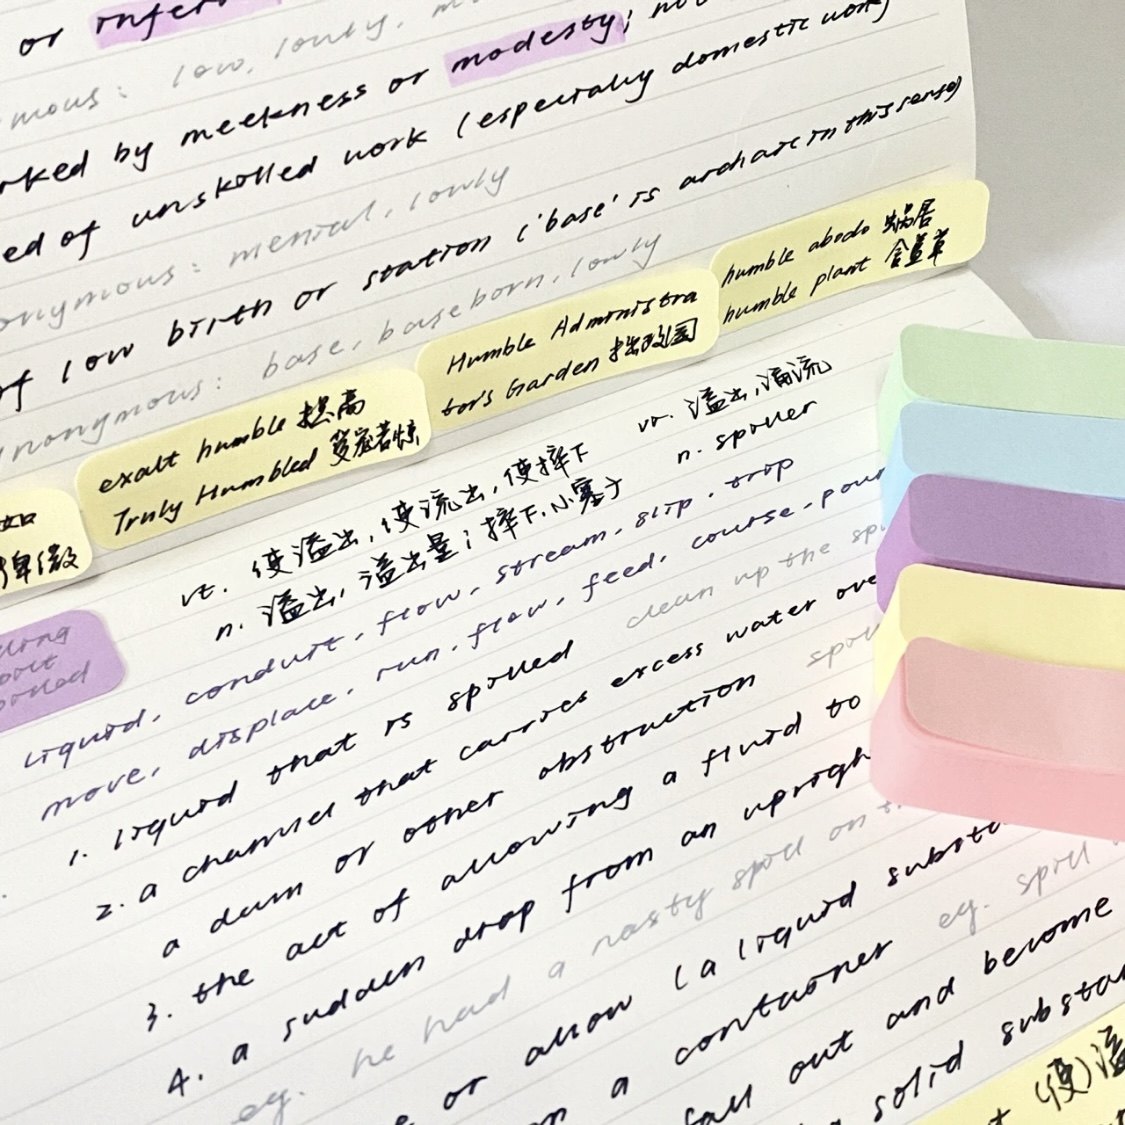 or infer
low, lowly.
mous:
rked by meekness or modesty; no
ed of unskilled work (especially domestic work)
onymous: menial, lowly
of low birth or station ('base' is archaic in this sense)
nonymous: base, baseborn, lowly
humble abode 蜗居
humble plant 含羞草
Humble Administra
tor's Garden 拙政园
exalt humble 提高
Truly Humbled 受宠若惊
卑微
vt. 使溢出,使流出,使摔下
n. 溢出,溢出量;摔下,小塞子
vi. 溢出,涌流
n. spiller
liquid, conduit, flow, stream, slip, trip
move, displace, run, flow, feed, course, pour
1. liquid that is spilled clean up the spi
2. a channel that carries excess water ove
a dam or other obstruction
3. the act of allowing a fluid to
4. a sudden drop from an uprigh
eg. he had a nasty spill on
or allow (a liquid substa
a container eg. spill
fall out and become
solid substan
(使)溢